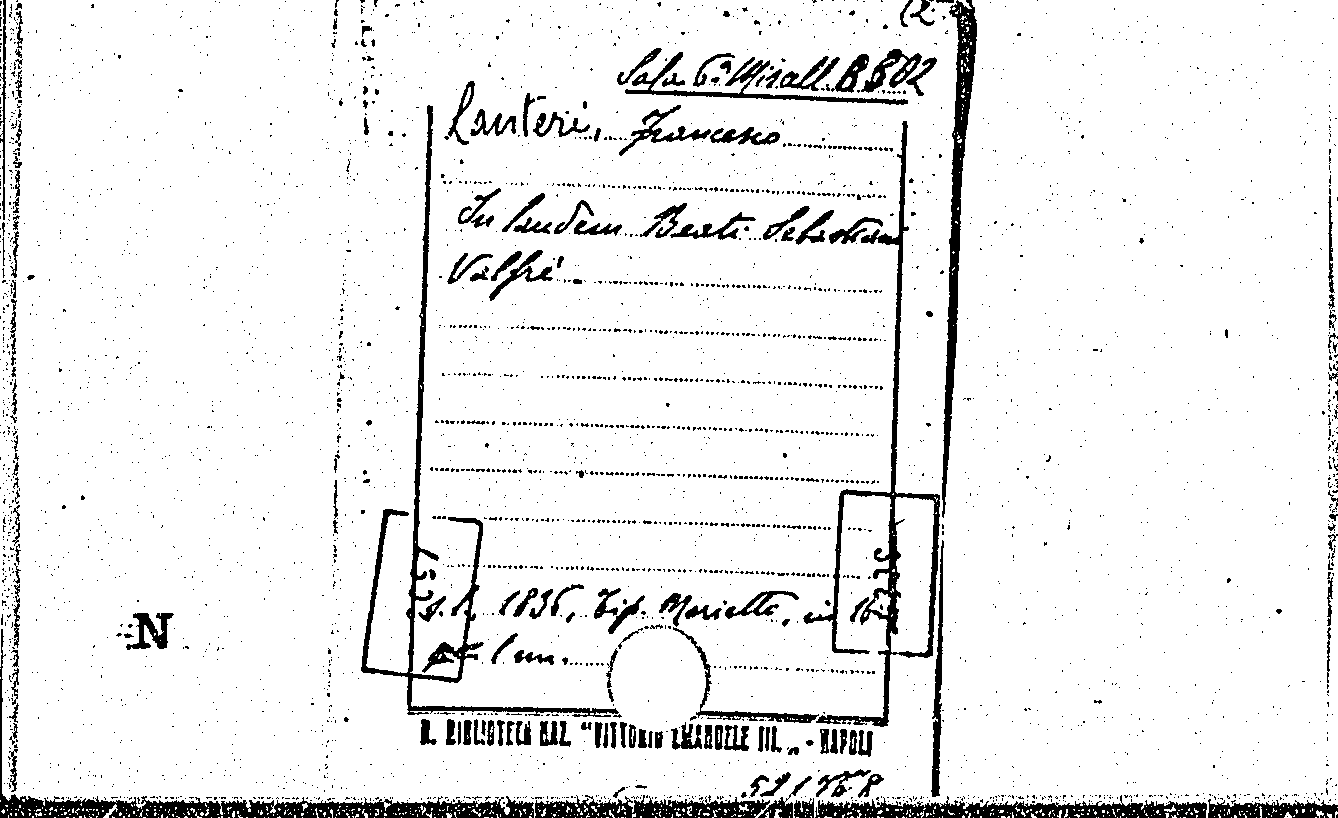 (2
Sala 6ª Miscell. B 802
Lanteri, Francesco
In laudem Beati Sebastiani
Valfré.
s.l., 1836, Tip. Marietti, in 16º
1 un.
N
R. BIBLIOTECA NAZ. "VITTORIO EMANUELE III. „ - NAPOLI